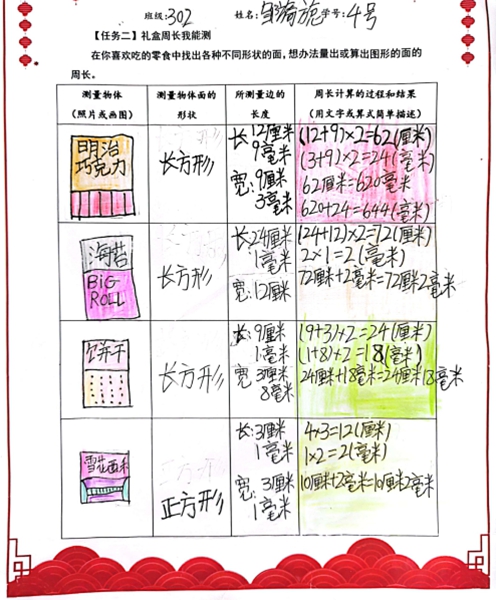 班级:302 姓名:邹漪旎 学号:4号
【任务二】礼盒周长我能测
在你喜欢吃的零食中找出各种不同形状的面,想办法量出或算出图形的面的
周长。
测量物体
(照片或画图)
测量物体面的
形状
所测量边的
长度
周长计算的过程和结果
(用文字或算式简单描述)
明治
巧克力
长方形
长12厘米
9毫米
宽:9厘米
3毫米
(12+9)×2=62(厘米)
(3+9)×2=24(毫米)
62厘米=620毫米
620+24=644(毫米)
海苔
BIG
ROLL
长方形
长24厘米
1毫米
宽:12厘米
(24+12)×2=72(厘米)
2×1=2(毫米)
72厘米+2毫米=72厘米2毫米
饼干
长方形
长:9厘米
1毫米
宽:3厘米
8毫米
(9+3)+2=24(厘米)
(1+8)+2=18(毫米)
24厘米+18毫米=24厘米18毫米
正方形
长:3厘米
1毫米
宽:3厘米
1毫米
4×3=12(厘米)
1×2=2(毫米)
10厘米+2毫米=10厘米2毫米